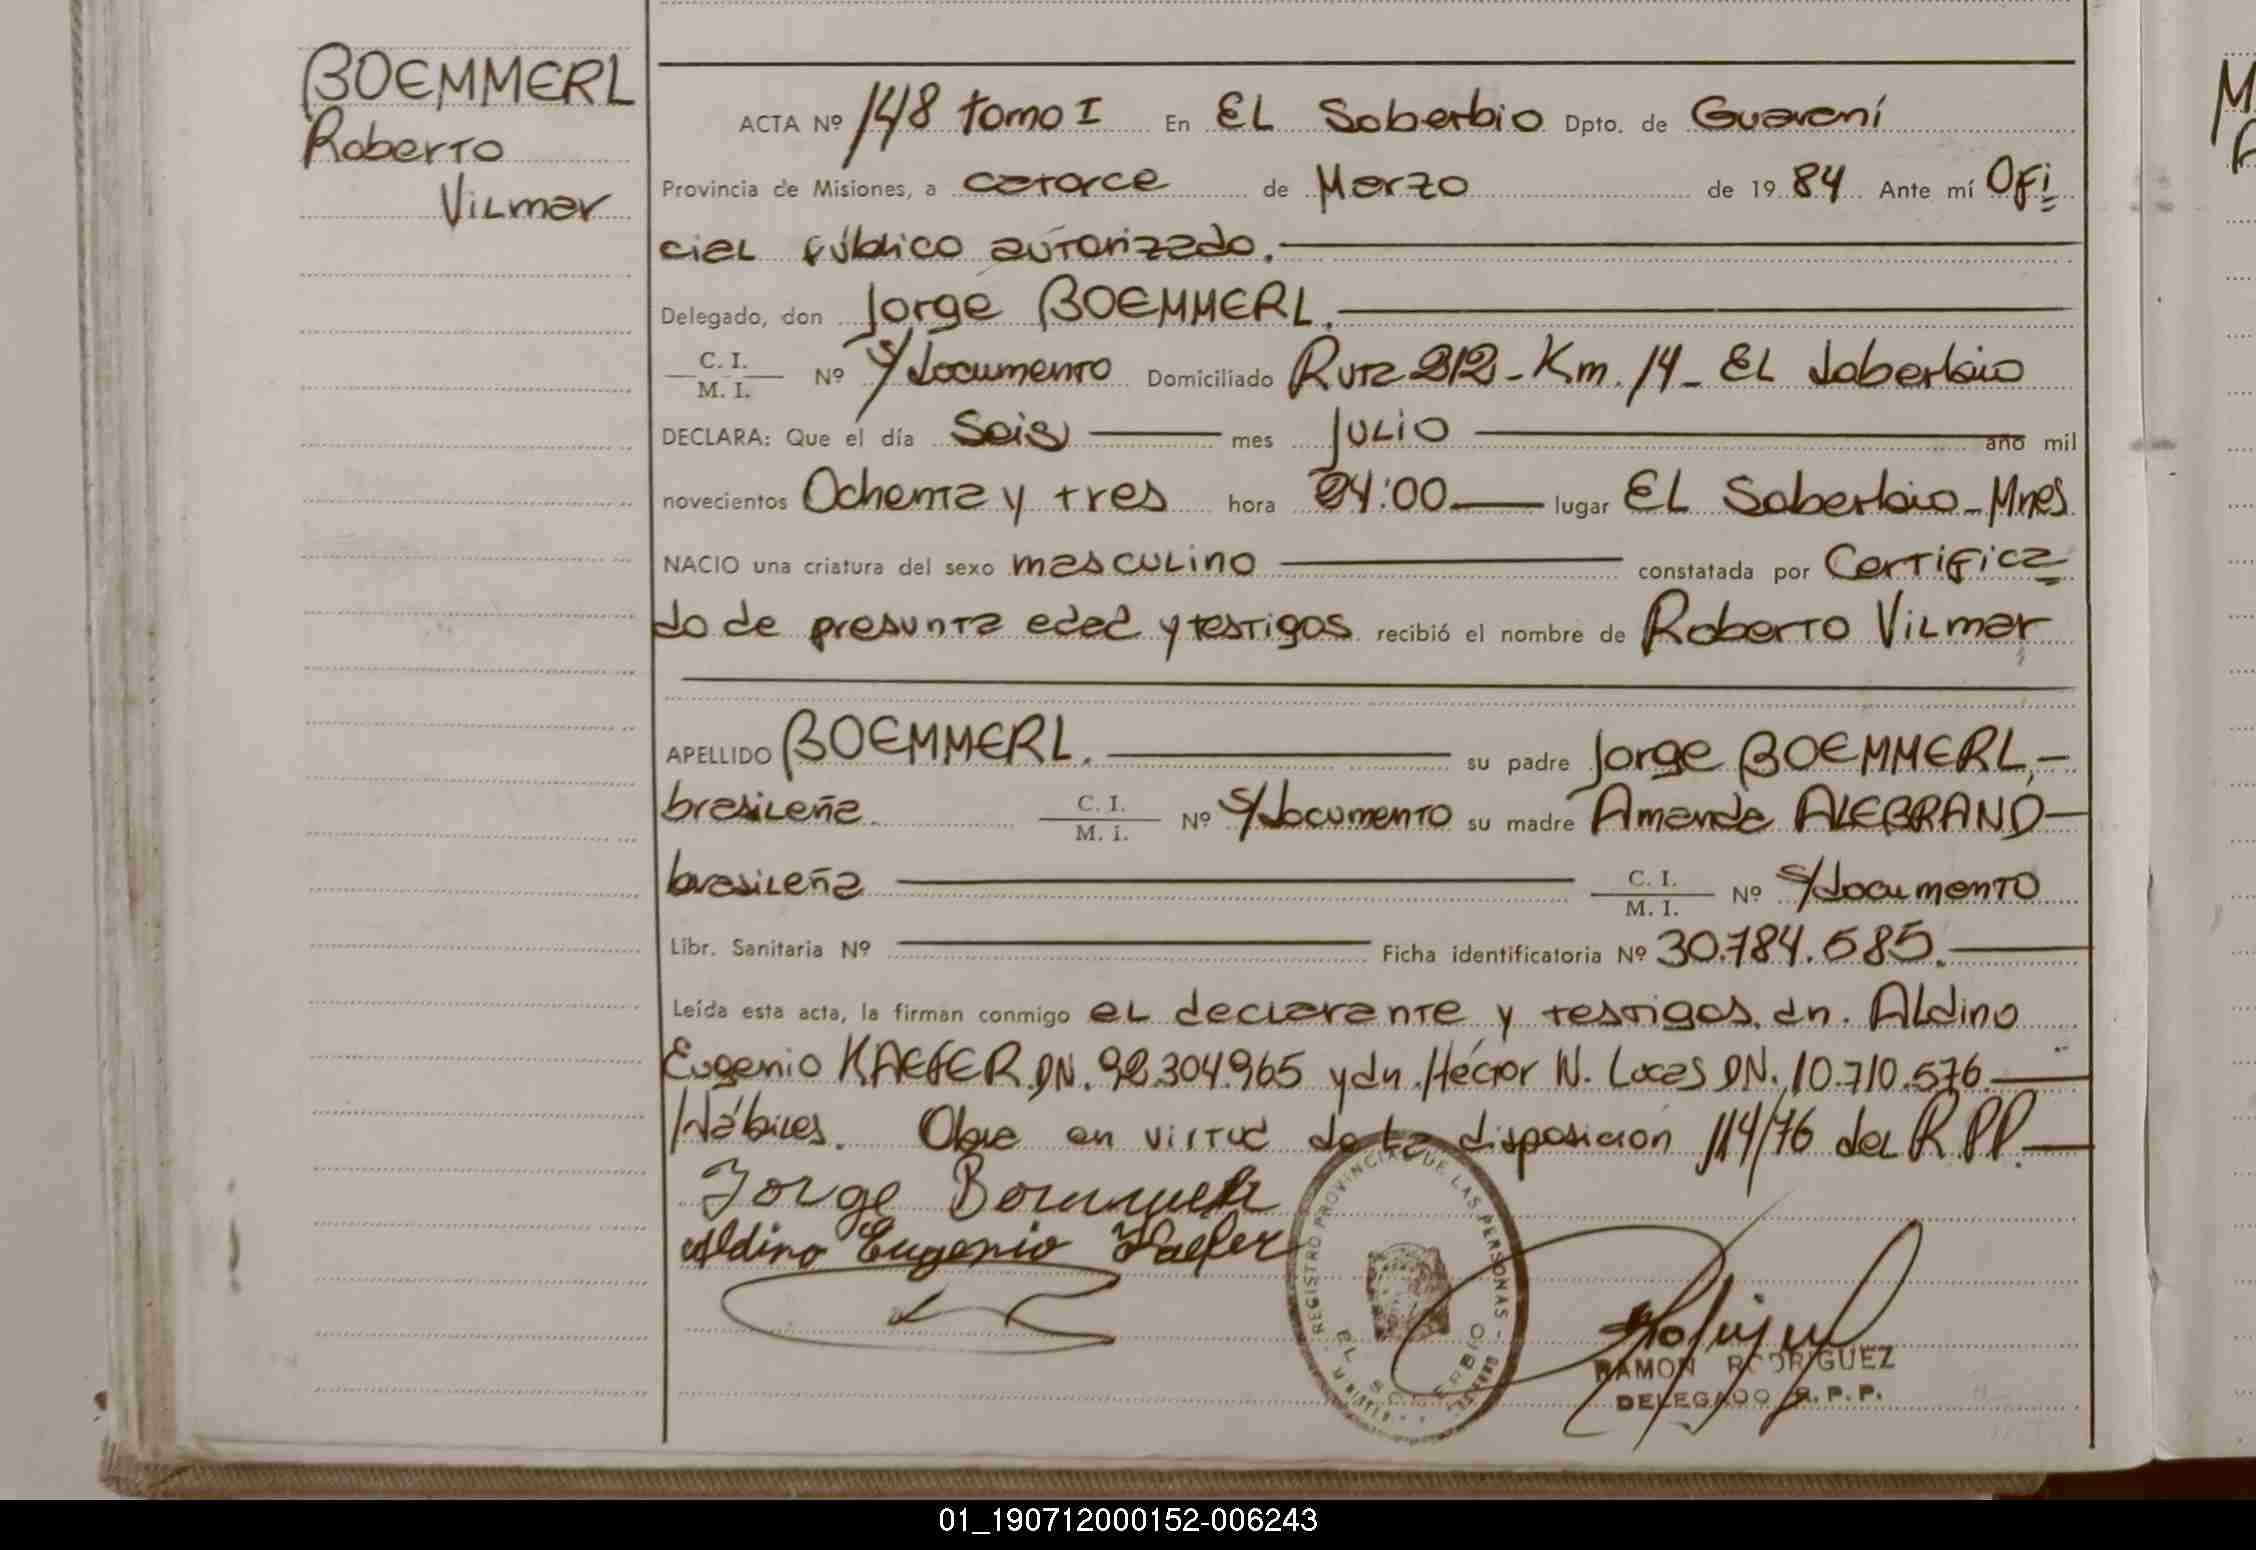 BOEMMERL
Roberto
Vilmar
ACTA Nº 148 tomo I En EL Soberbio Dpto. de Guaraní
Provincia de Misiones, a catorce de Marzo de 1984 Ante mí Ofi
cial público autorizado.
Delegado, don Jorge BOEMMERL.
C. I.
M. I. Nº s/documento Domiciliado Ruta 212 - Km. 14 - EL Soberbio
DECLARA: Que el día Seis mes Julio año mil
novecientos Ochenta y tres hora 04:00 lugar EL Soberbio - Mnes
NACIO una criatura del sexo masculino constatada por Certifica
do de presunta edad y testigos recibió el nombre de Roberto Vilmar
APELLIDO BOEMMERL. su padre Jorge BOEMMERL, -
brasileña C. I.
M. I. Nº s/documento su madre Amanda ALEBRAND
brasileña C. I.
M. I. Nº s/documento
Libr. Sanitaria Nº Ficha identificatoria Nº 30.784.585.
Leída esta acta, la firman conmigo el declarante y testigos, dn. Aldino
Eugenio KAEFER DN. 92.304.965 y dn. Héctor N. Lucas DN. 10.710.576.
Hábiles. Obre en virtud de la disposición 114/76 del R.P.P.
Jorge
Aldino Eugenio Kaefer
REGISTRO PROVINCIAL DE LAS PERSONAS
EL SOBERBIO
RAMON RODRIGUEZ
DELEGADO R. P. P.
01_190712000152-006243